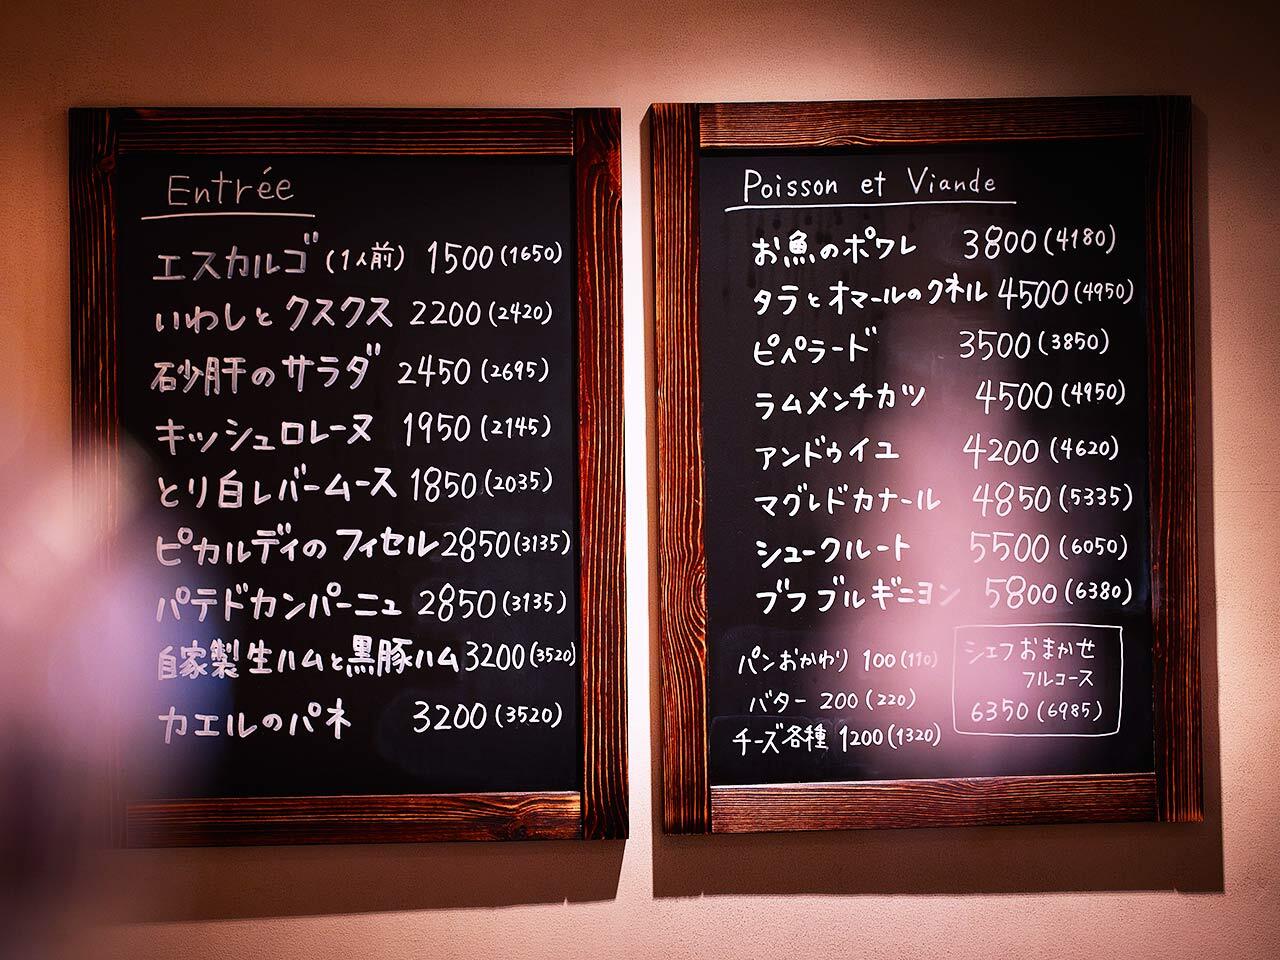 Entrée
エスカルゴ(1人前) 1500(1650)
いわしとクスクス 2200(2420)
砂肝のサラダ 2450(2695)
キッシュロレーヌ 1950(2145)
とり白レバームース 1850(2035)
ピカルディのフィセル 2850(3135)
パテドカンパーニュ 2850(3135)
自家製生ハムと黒豚ハム 3200(3520)
カエルのパネ 3200(3520)
Poisson et Viande
お魚のポワレ 3800(4180)
タラとオマールのクネル 4500(4950)
ピペラード 3500(3850)
ラムメンチカツ 4500(4950)
アンドゥイユ 4200(4620)
マグレドカナール 4850(5335)
シュークルート 5500(6050)
ブフブルギニヨン 5800(6380)
パンおかわり 100(110)
バター 200(220)
チーズ各種 1200(1320)
シェフおまかせ
フルコース
6350(6985)